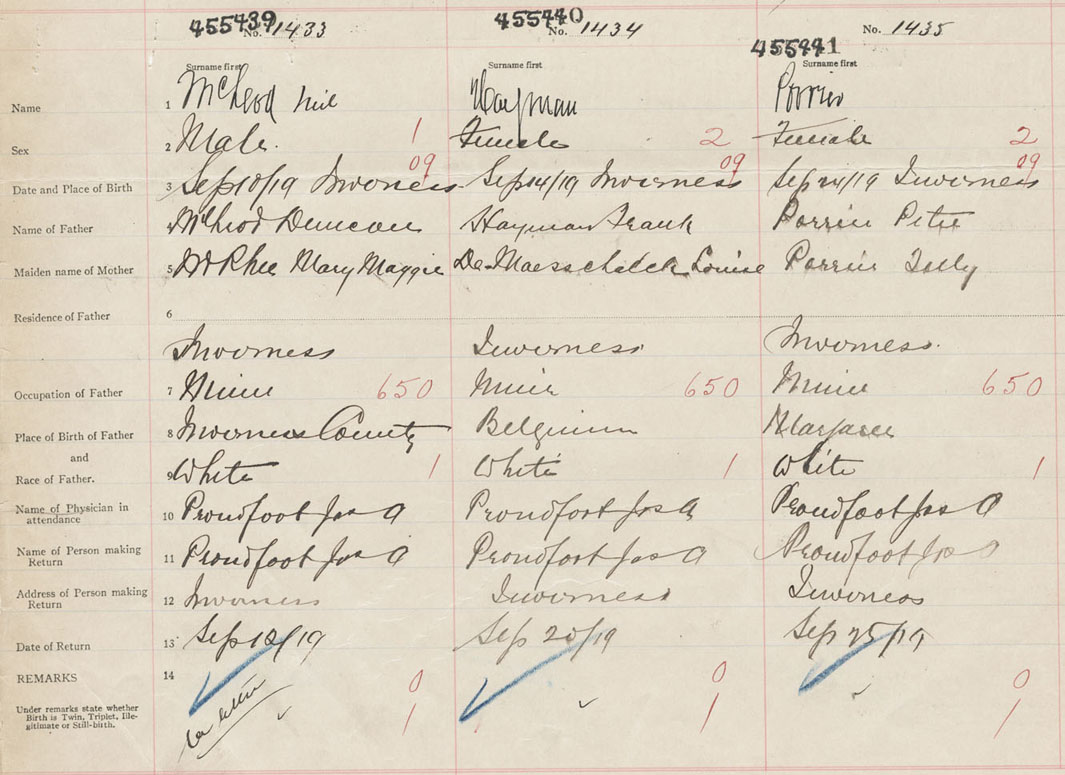 455439 455440 455441
No. 1433 No. 1434 No. 1435
Surname first Surname first Surname first
Name 1 McLeod Hayman
Sex 2 Male. 1 Female 2 Female 2
09 09 09
Date and Place of Birth 3 Sep 10/19 Inverness Sep 14/19 Inverness Sep 24/19 Inverness
Name of Father 4 McLeod Duncan Hayman Frank Perrin Peter
Maiden name of Mother 5 McPhee Mary Maggie De Maesschalck Louise Perrin
Residence of Father 6
Inverness Inverness. Inverness.
Occupation of Father 7 Miner 650 Miner 650 Miner 650
Place of Birth of Father 8 Inverness County Belgium Margaree
and
Race of Father. 9 White 1 White 1 White 1
Name of Physician in attendance 10 Proudfoot Jas A Proudfoot Jas A Proudfoot Jas A
Name of Person making Return 11 Proudfoot Jas A Proudfoot Jas A Proudfoot Jas A
Address of Person making Return 12 Inverness Inverness Inverness
Date of Return 13 Sep 12/19 Sep 20/19 Sep 25/19
REMARKS 14 0 0 0
Under remarks state whether Birth is Twin, Triplet, Ille-
gitimate or Still-birth. 1 1 1